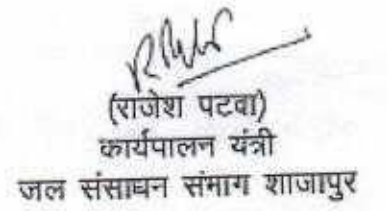 (राजेश पटवा)
कार्यपालन यंत्री
जल संसाधन संभाग शाजापुर